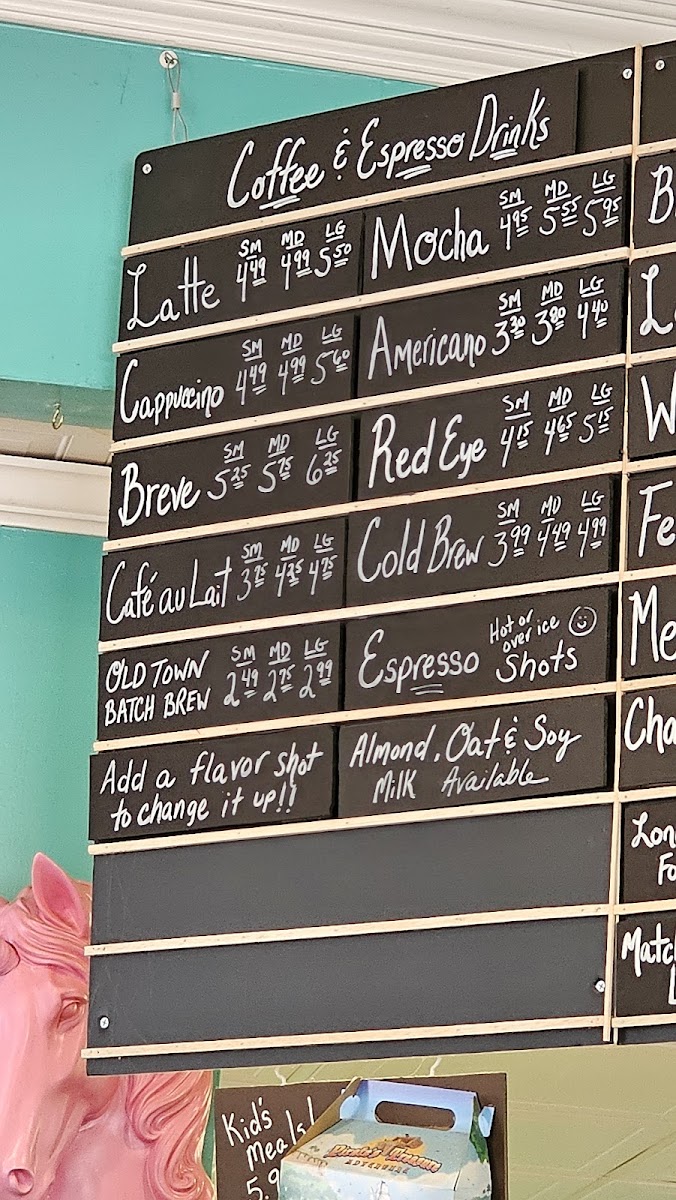 Coffee & Espresso Drinks
Latte SM 4.49 MD 4.99 LG 5.50
Mocha SM 4.95 MD 5.55 LG 5.95
Cappuccino SM 4.49 MD 4.99 LG 5.60
Americano SM 3.30 MD 3.80 LG 4.40
Breve SM 5.25 MD 5.75 LG 6.25
Red Eye SM 4.15 MD 4.65 LG 5.15
Café au Lait SM 3.75 MD 4.25 LG 4.75
Cold Brew SM 3.99 MD 4.49 LG 4.99
OLD TOWN
BATCH BREW SM 2.49 MD 2.75 LG 2.99
Espresso Hot or
over ice
Shots
Add a flavor shot
to change it up!!
Almond, Oat & Soy
Milk Available
Kid's
Meals!